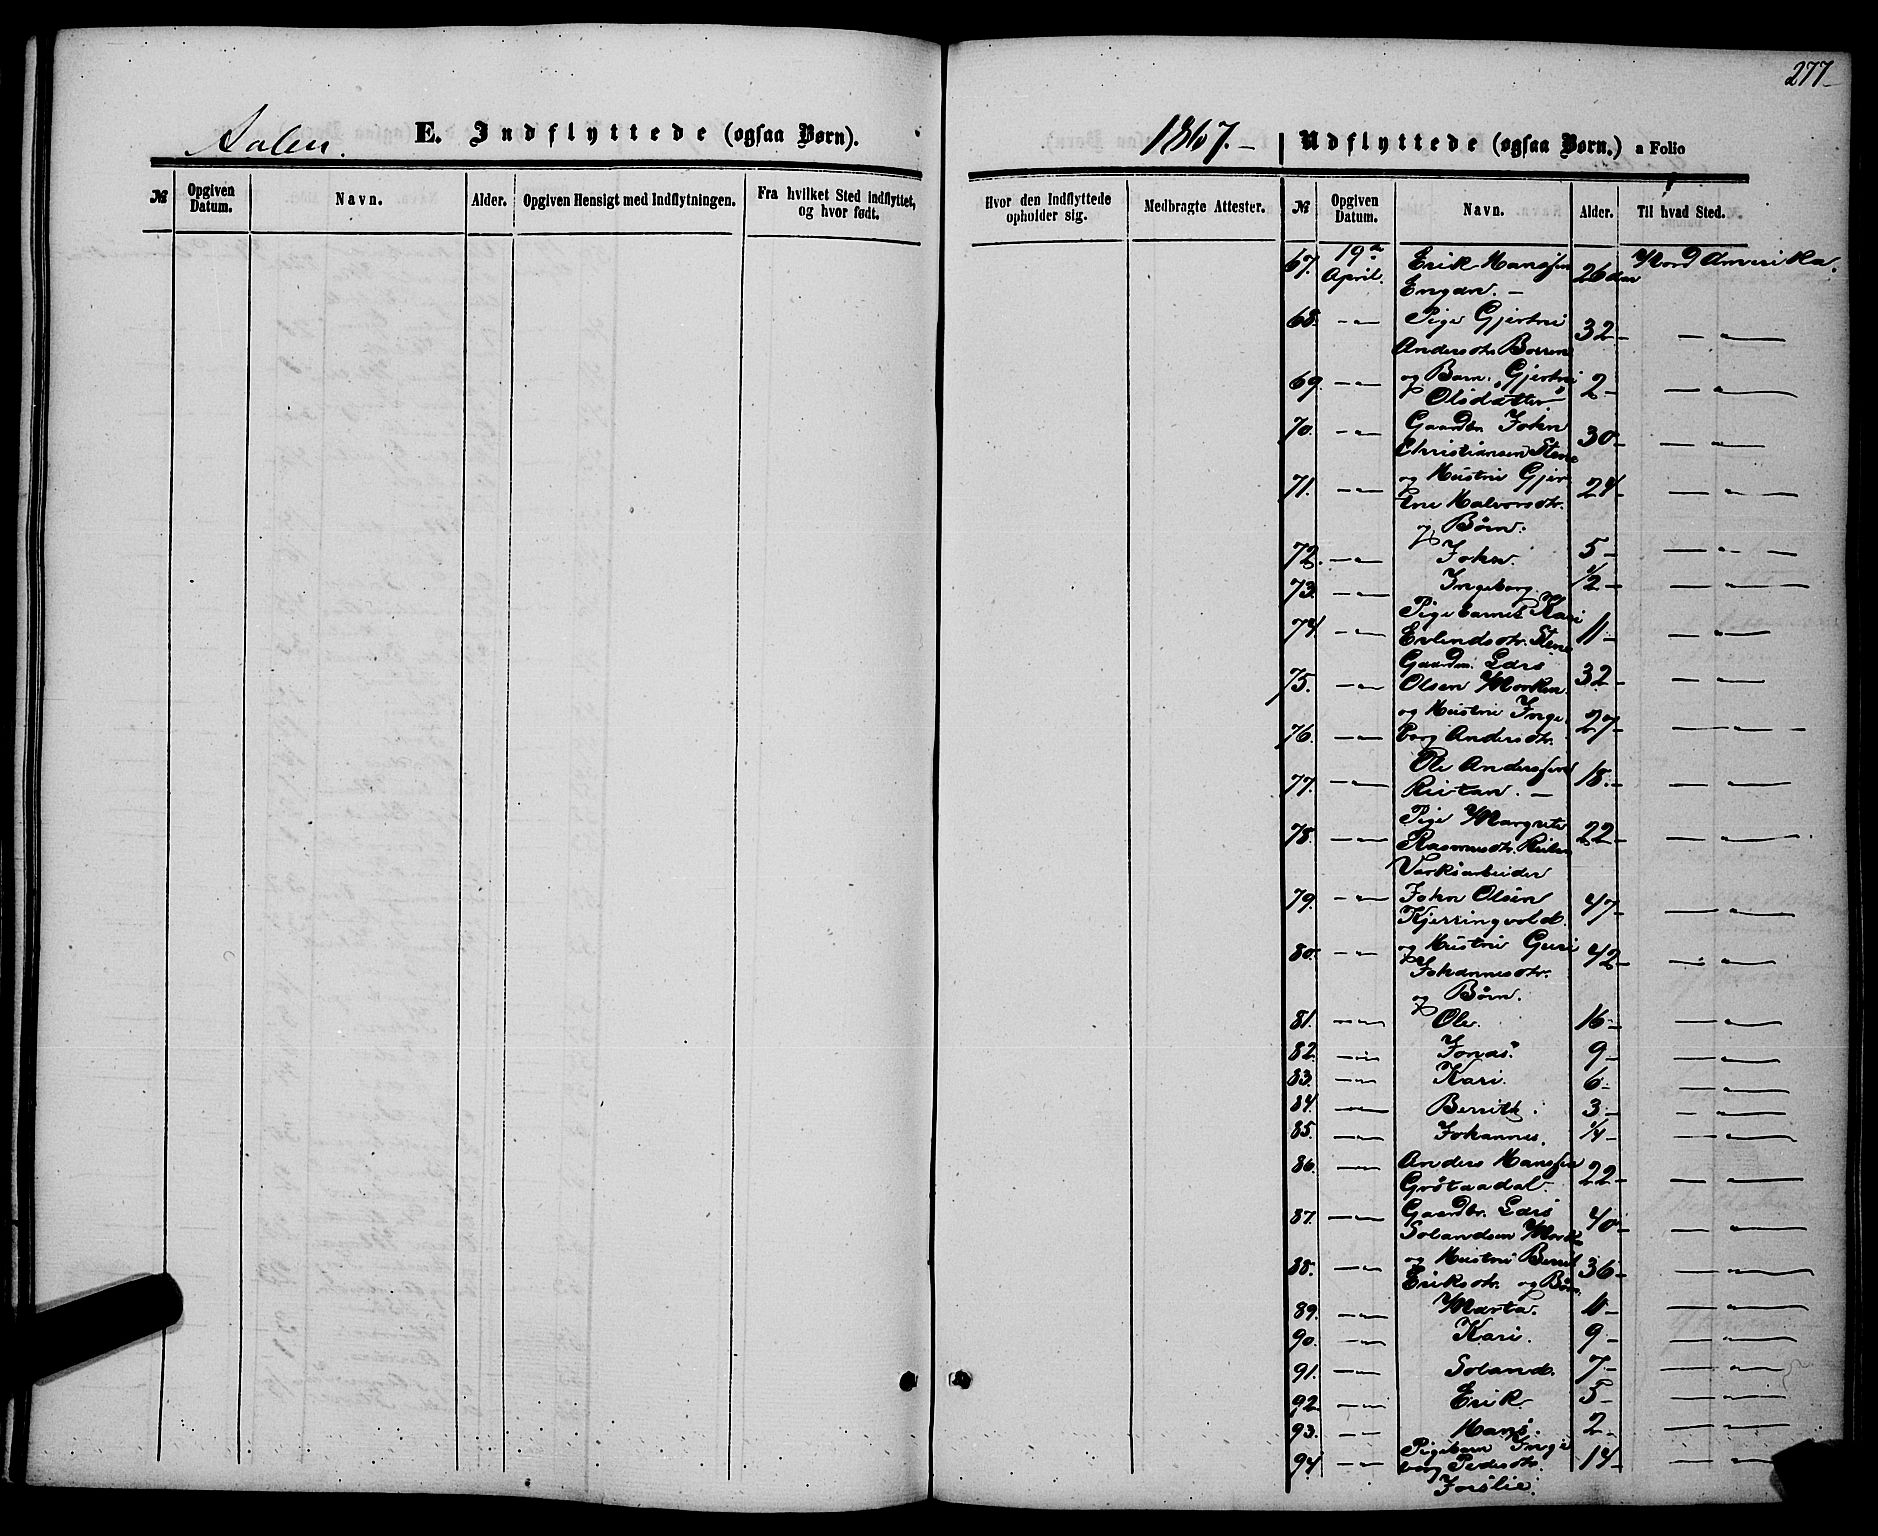 277
Aalen.
E. Indflyttede (ogsaa Børn).
1867. Udflyttede (ogsaa Børn.) a Folio
№ Opgiven Datum. Navn. Alder. Opgiven Hensigt med Indflytningen. Fra hvilket Sted indflyttet, og hvor født.
Hvor den Indflyttede opholder sig. Medbragte Attester. № Opgiven Datum. Navn. Alder. Til hvad Sted.
67. 19de April. Erik Hansen Engan. 26 aar Nord Amerika.
68. —"— Pige Gjertru Andersdtr. Borren 32 —"—
69. —"— og Barn. Gjertru Olsdatter 2 —"—
70. —"— Gaardbr. John Christiansen Stene 30 —"—
71. —"— og Hustru Gjertrue Halvorsdtr. 24 —"—
og Børn.
72. —"— John. 5 —"—
73. —"— Ingeborg. 1/2 —"—
74 —"— Pigebarnet Kari Erlendsdtr. Stene 11 —"—
75. —"— Gaardm. Lars Olsen Morken. 32 —"—
76. —"— og Hustru Ingeborg Andersdtr. 27 —"—
77. —"— Ole Andersen Reitan. 18 —"—
78. —"— Pige Margrete Rasmusdtr. 22 —"—
Værksarbeider
79. —"— John Olsen Kjerringvold. 47 —"—
80. —"— og Hustru Guri Johannesdtr. 42 —"—
og Børn.
81. —"— Ole. 16 —"—
82. —"— Jonas. 9 —"—
83. —"— Kari. 6 —"—
84. —"— Berrith. 3 —"—
85. —"— Johannes. 1/4 —"—
86. —"— Anders Hansen Grøtaadal. 22 —"—
87. —"— Gaardbr. Lars Solandsen 40 —"—
88. —"— og Hustru Berret Eriksdtr. og Børn. 36 —"—
89. —"— Marta. 11 —"—
90. —"— Kari. 9 —"—
91. —"— Soland. 7 —"—
92 —"— Erik. 5 —"—
93. —"— Hans. 2 —"—
94 —"— Pigebarn Ingeborg Pedersdtr. 14 —"—